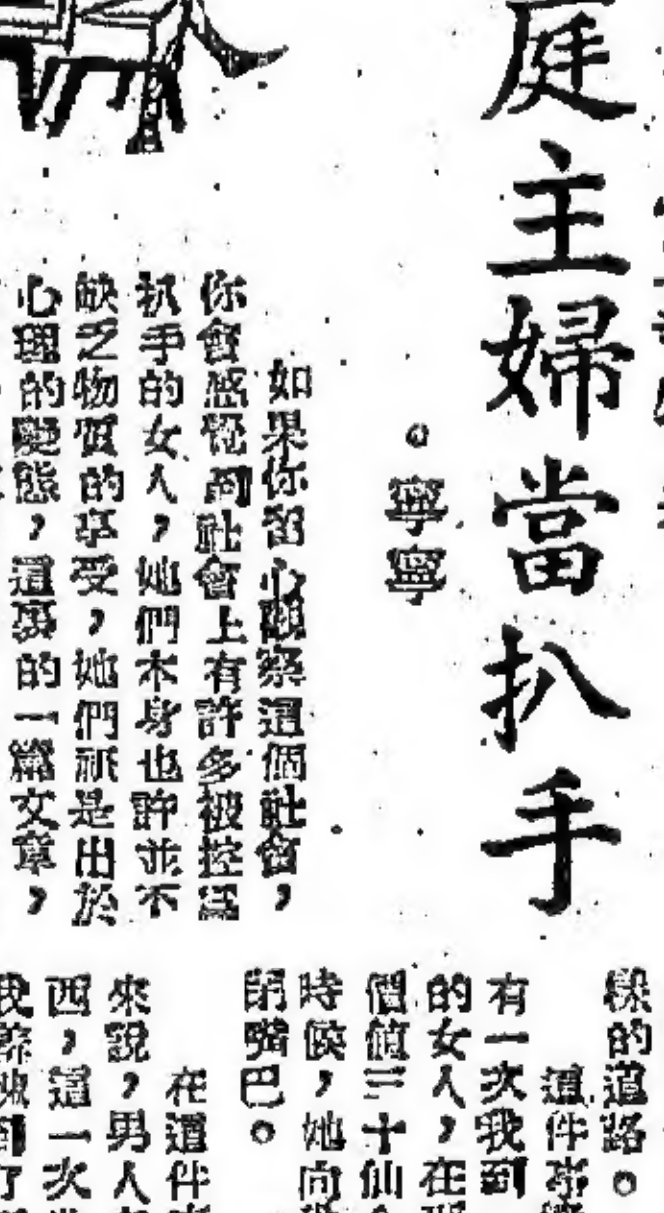 庭主婦當扒手
。寧寧
如果你留心觀察這個社會，
你會感覺到社會上有許多被控為
扒手的女人，她們本身也許並不
缺乏物質的享受，她們祇是出於
心理的變態，這裏的一篇文章，
樣的道路。
這件事
有一次我到
的女人，在
價值三十仙
時候，她向
嘴巴。
在這件
來說，男人
西，這一次